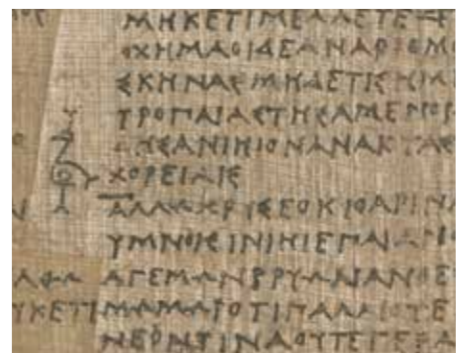 ΜΗΚΕΤΙΜΕΛΛΕΤΕΖΕ
ΟΧΗΜΑΟΙΔΕΑΝΑΡΙΘΜΟ
ΣΚΗΝΑΣΜΗΔΕΤΙΣΗΜ
ΤΡΟΠΑΙΑΣΤΗΣΑΜΕΝΟΙ
ΔΗΣΑΝΙΗΙΟΝΑΝΑΚΤΑΣ
ΧΟΡΕΙΑΙΣ
ΑΛΛΩΧΡΥΣΕΟΚΙΘΑΡΙΝΑ
ΥΜΝΟΙΣΙΝΙΗΙΕΠΑΙΑΝ
ΑΓΕΜΩΝΒΡΥΩΝΑΝΘΕ
ΥΚΕΤΙ ΜΩΜΩΙΟΤΙΠΑΛΑΙΟΤΕ
ΝΕΟΝΤΙΝΑΟΥΤΕΓΕΡΑ